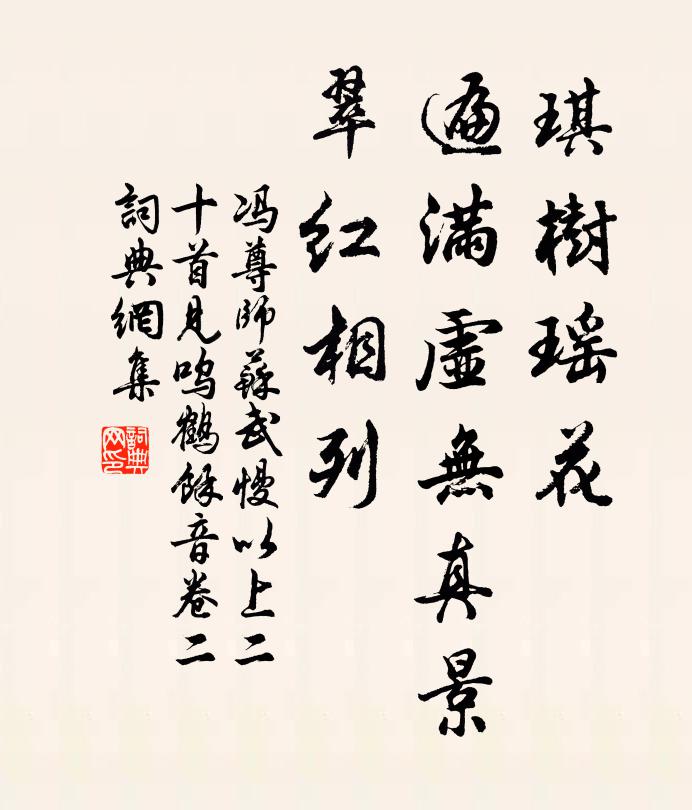 琪樹瑶花
遍滿虛無真景
翠紅相列
馮尊師蘇武慢以上二
十首見鸣鶴餘音卷二
詞典網集
詞典
网印